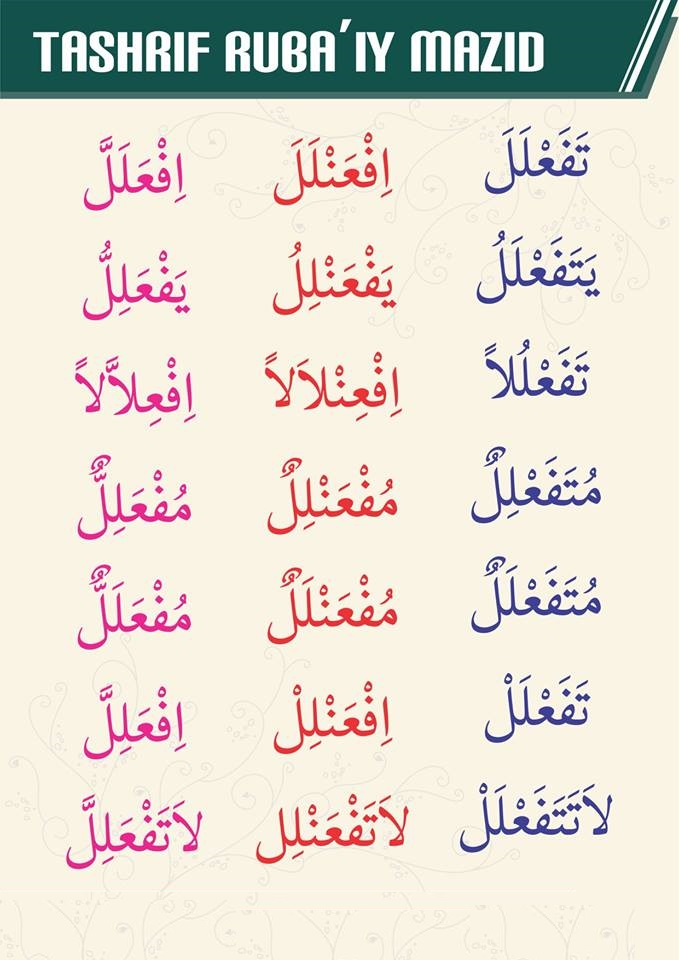 TASHRIF RUBA'IY MAZID
تَفَعْلَلَ اِفْعَنْلَلَ اِفْعَلَلَّ
يَتَفَعْلَلُ يَفْعَنْلِلُ يَفْعَلِلُّ
تَفَعْلُلاً اِفْعِنْلاَلاً اِفْعِلاَّلاً
مُتَفَعْلِلٌ مُفْعَنْلِلٌ مُفْعَلِلٌّ
مُتَفَعْلَلٌ مُفْعَنْلَلٌ مُفْعَلَلٌّ
تَفَعْلَلْ اِفْعَنْلِلْ اِفْعَلِلَّ
لاَتَتَفَعْلَلْ لاَتَفْعَنْلِل لاَتَفْعَلِلَّ